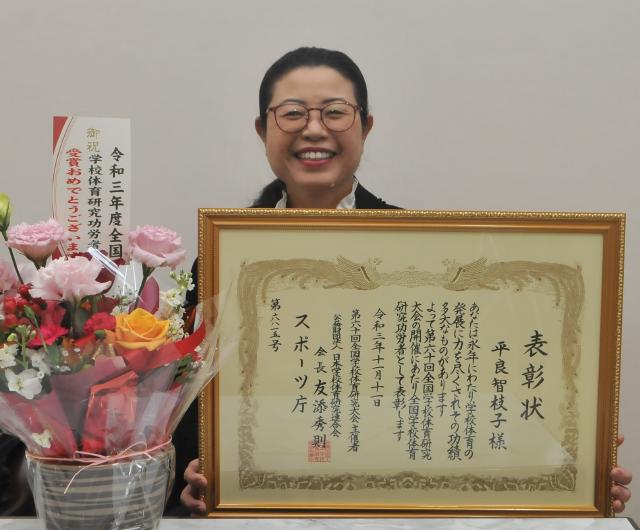 御祝
令和三年度全国
学校体育研究功労者
受賞おめでとうございま
表彰状
平良智枝子様
あなたは永年にわたり学校体育の
発展に力を尽くされその功績
多大なものがあります
よって第六十回全国学校体育研究
大会の開催にあたり全国学校体育
研究功労者として表彰します
令和三年十一月十一日
第六十回全国学校体育研究大会主催者
公益財団法人日本学校体育研究連合会
会長友添秀則
スポーツ庁
第六八二五号